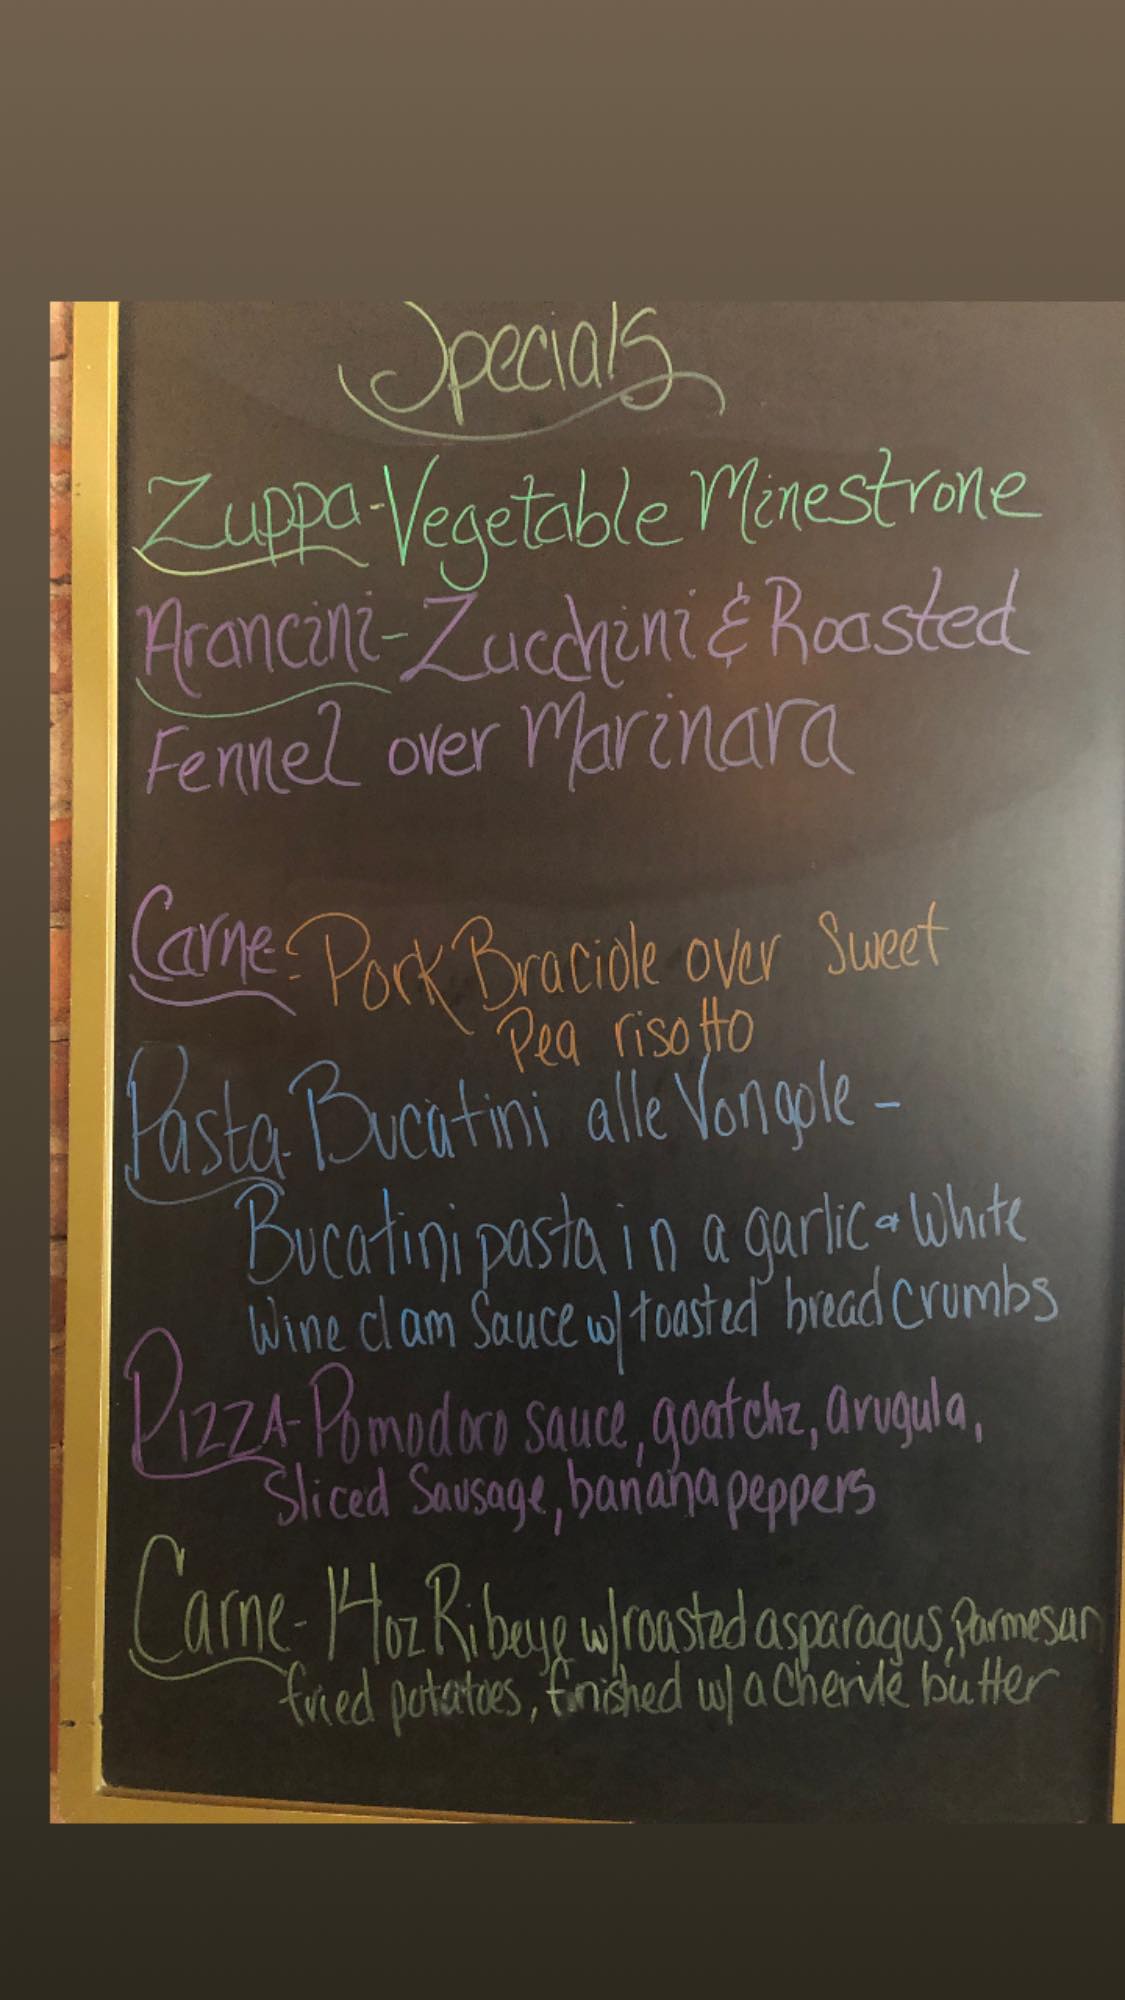 Specials
Zuppa-Vegetable Minestrone
Arancini-Zucchini & Roasted
Fennel over Marinara
Carne-Pork Braciole over Sweet
Pea risotto
Pasta-Bucatini alle Vongole-
Bucatini pasta in a garlic & White
Wine clam Sauce w/ toasted bread crumbs
PIZZA-Pomodoro sauce, goat chz, arugula,
Sliced Sausage, banana peppers
Carne-14oz Ribeye w/ roasted asparagus, parmesan
fried potatoes, finished w/ a Chervile butter